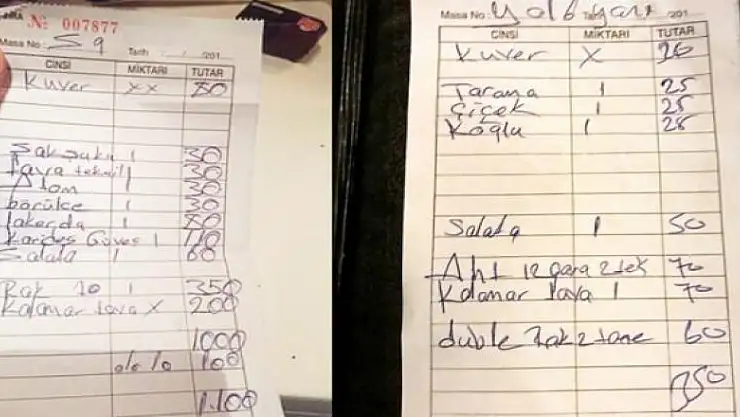 № 007877
Masa No : S 9 Tarih : / /201
CİNSİ MİKTARI TUTAR
Kuver xx 80
Şakşuka 1 30
Tava tekmil 1 30
Atom 1 30
börülce 1 30
lakerda 1 80
Karides Güveç 1 110
Salata 1 60
Rak 70 1 350
Kalamar tava X 200
1.000
%10 100
1.100
Masa No : yolbyarı Tarih 201
CİNSİ MİKTARI TUTAR
Kuver X 20
Tarama 1 25
Çiçek 1 25
Köğlu 1 25
Salata 1 50
Aht ızgara 2 tek 70
Kalamar tava 1 70
duble Rak 2 tane 60
350